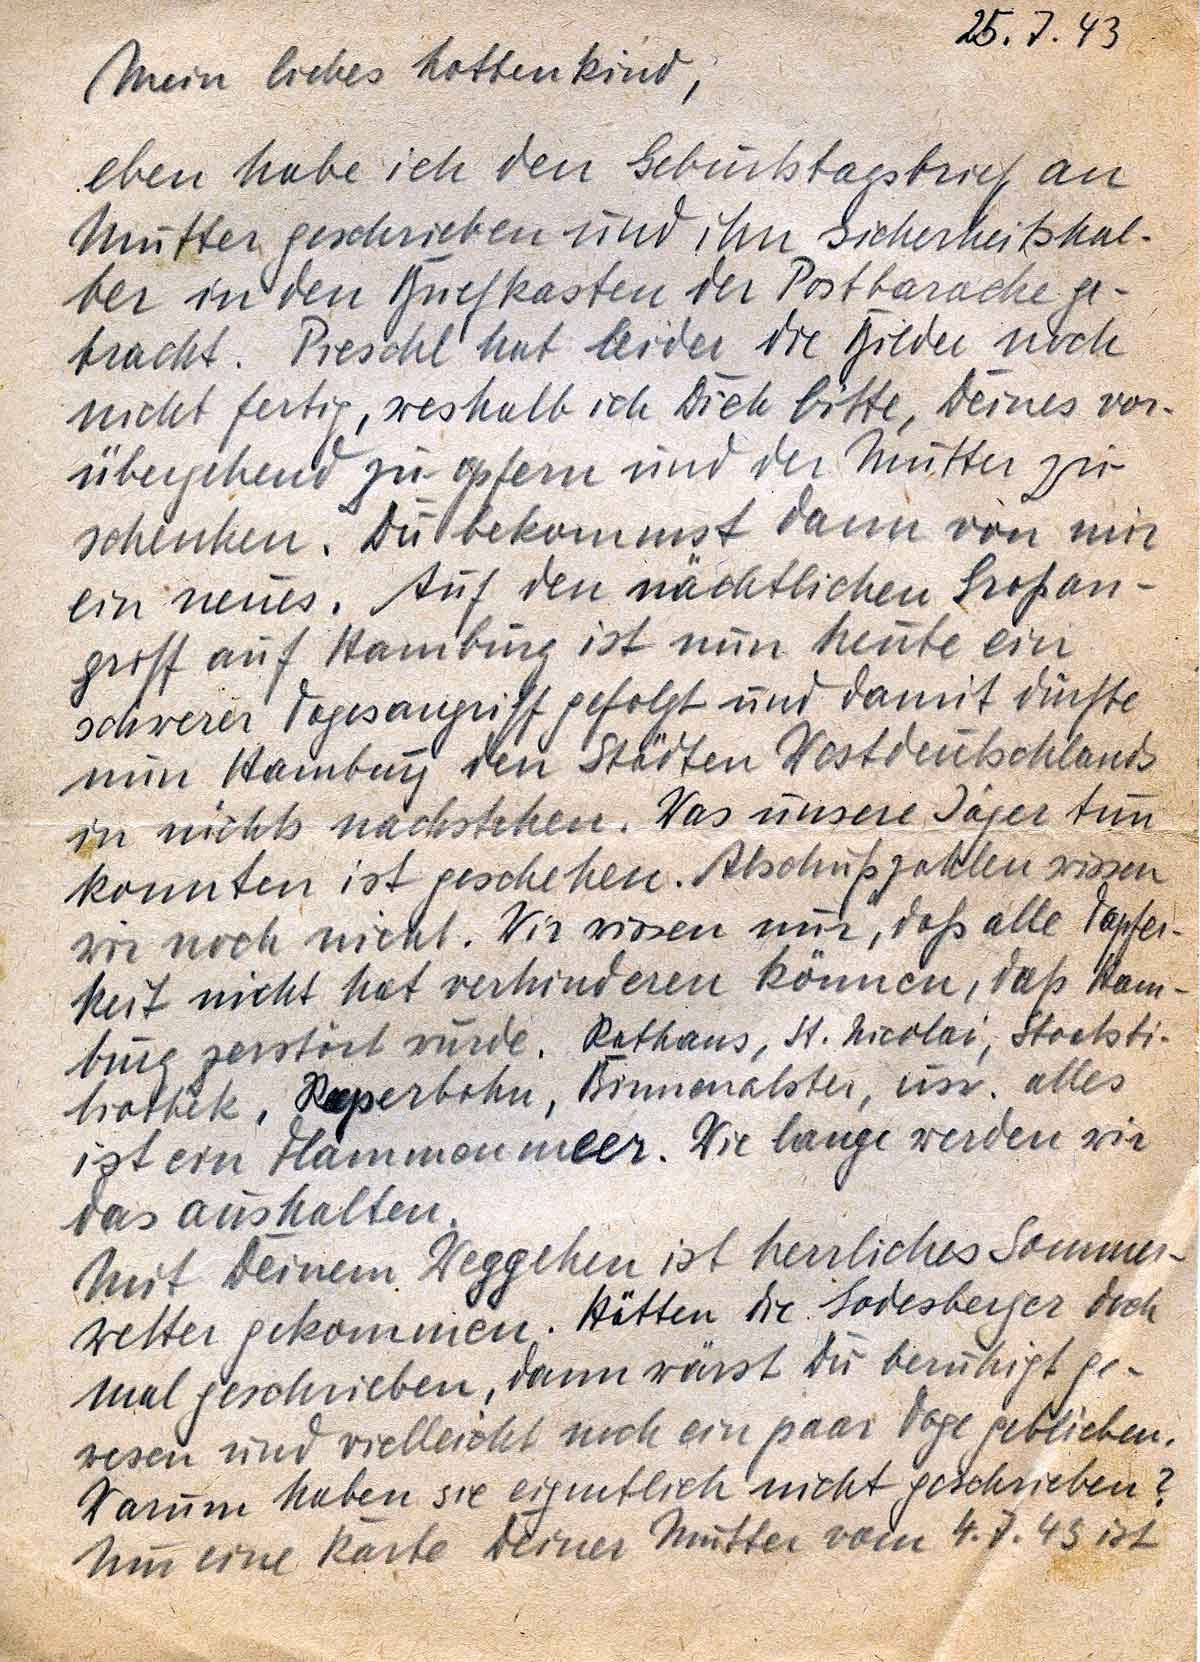 25. 7. 43
Mein liebes Lottenkind,
eben habe ich den Geburtstagsbrief an
Mutter geschrieben und ihn sicherheitshal-
ber in den Briefkasten der Postbaracke ge-
bracht. Pieschl hat leider die Bilder noch
nicht fertig, weshalb ich Dich bitte, Deines vor-
übergehend zu opfern und der Mutter zu
schenken. Du bekommst dann von mir
ein neues. Auf den nächtlichen Großan-
griff auf Hamburg ist nun heute ein
schwerer Tagesangriff gefolgt und damit dürfte
nun Hamburg den Städten Westdeutschlands
in nichts nachstehen. Was unsere Jäger tun
konnten ist geschehen. Abschußzahlen wissen
wir noch nicht. Wir wissen nur, daß alle Tapfer-
keit nicht hat verhinderen können, daß Ham-
burg zerstört wurde. Rathaus, St. Nicolai, Staatsbi-
bliothek, Reeperbahn, Binnenalster, usw. alles
ist ein Flammenmeer. Wie lange werden wir
das aushalten.
Mit Deinem Weggehen ist herrliches Sommer-
wetter gekommen. Hätten die Godesberger doch
mal geschrieben, dann wärst Du beruhigt ge-
wesen und vielleicht noch ein paar Tage geblieben.
Warum haben sie eigentlich nicht geschrieben?
Nur eine Karte Deiner Mutter vom 4. 7. 43 ist